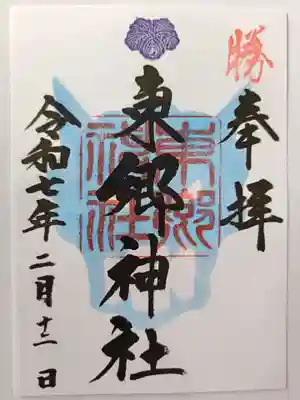 勝
奉拝
東郷神社
東郷神社
令和七年二月十二日